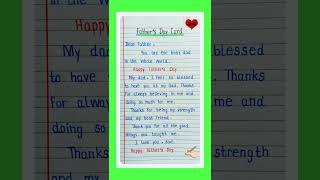 Father's Day Card
Dear Father,
You are the best dad
in the whole world.
Happy Father's Day
My dad, I feel so blessed
to have you as my Dad. Thanks
for always believing in me and
doing so much for me.
Thanks for being my strength
and my best friend.
Thank you for all the good
things you taught me.
I love you,
Happy Father's Day
in the
My da
to have
for alw
doing so
Thanks
blessed
Thanks
me and
strength